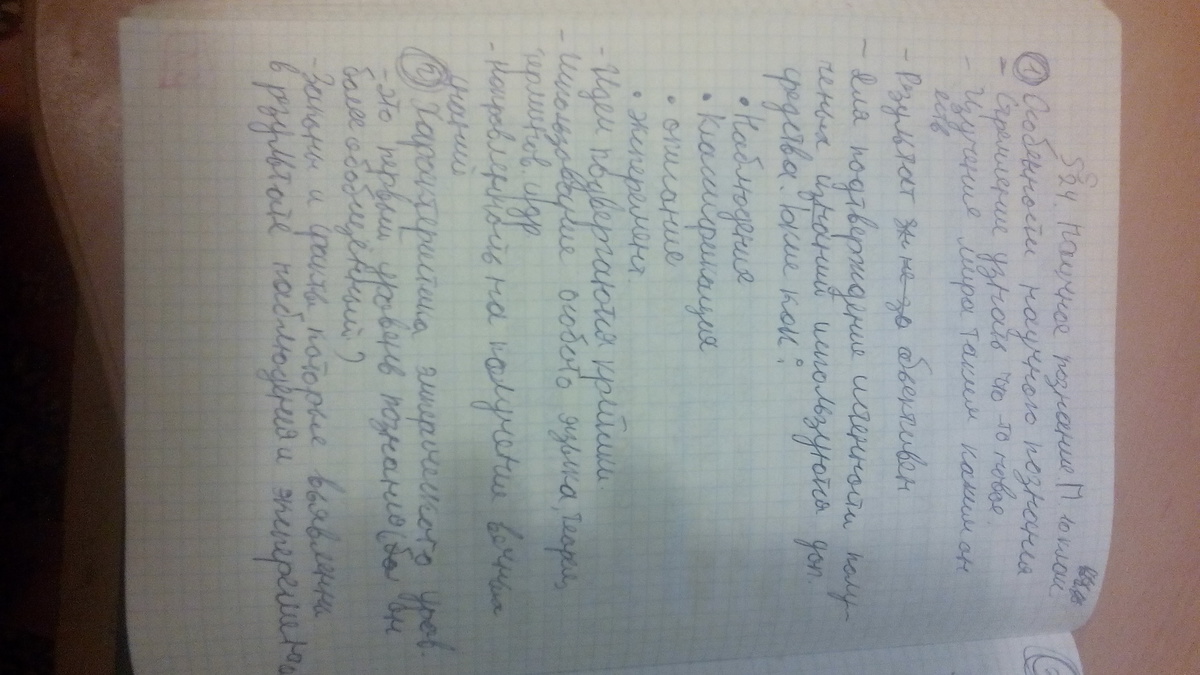 § 24. Научное познание. П 10 класс
① Особенности научного познания
- Стремление узнать что-то новое.
- Изучение мира таким каким он
есть
- Результат объективен
- Для подтверждение истенности полу-
ченых используются доп.
средства. Такие как:
• Наблюдение
• Классификация
• описание
• эксперемент.
- Идеи подвергаются критики.
- Использование особого языка, теория,
терминов. идр
- Направленность на получении
② Характеристика эмпирического уров.
- Это первый уровень познания
более обобщённый?)
- Законы и факты, которые выявленны
в результате наблюдения и эксперемента